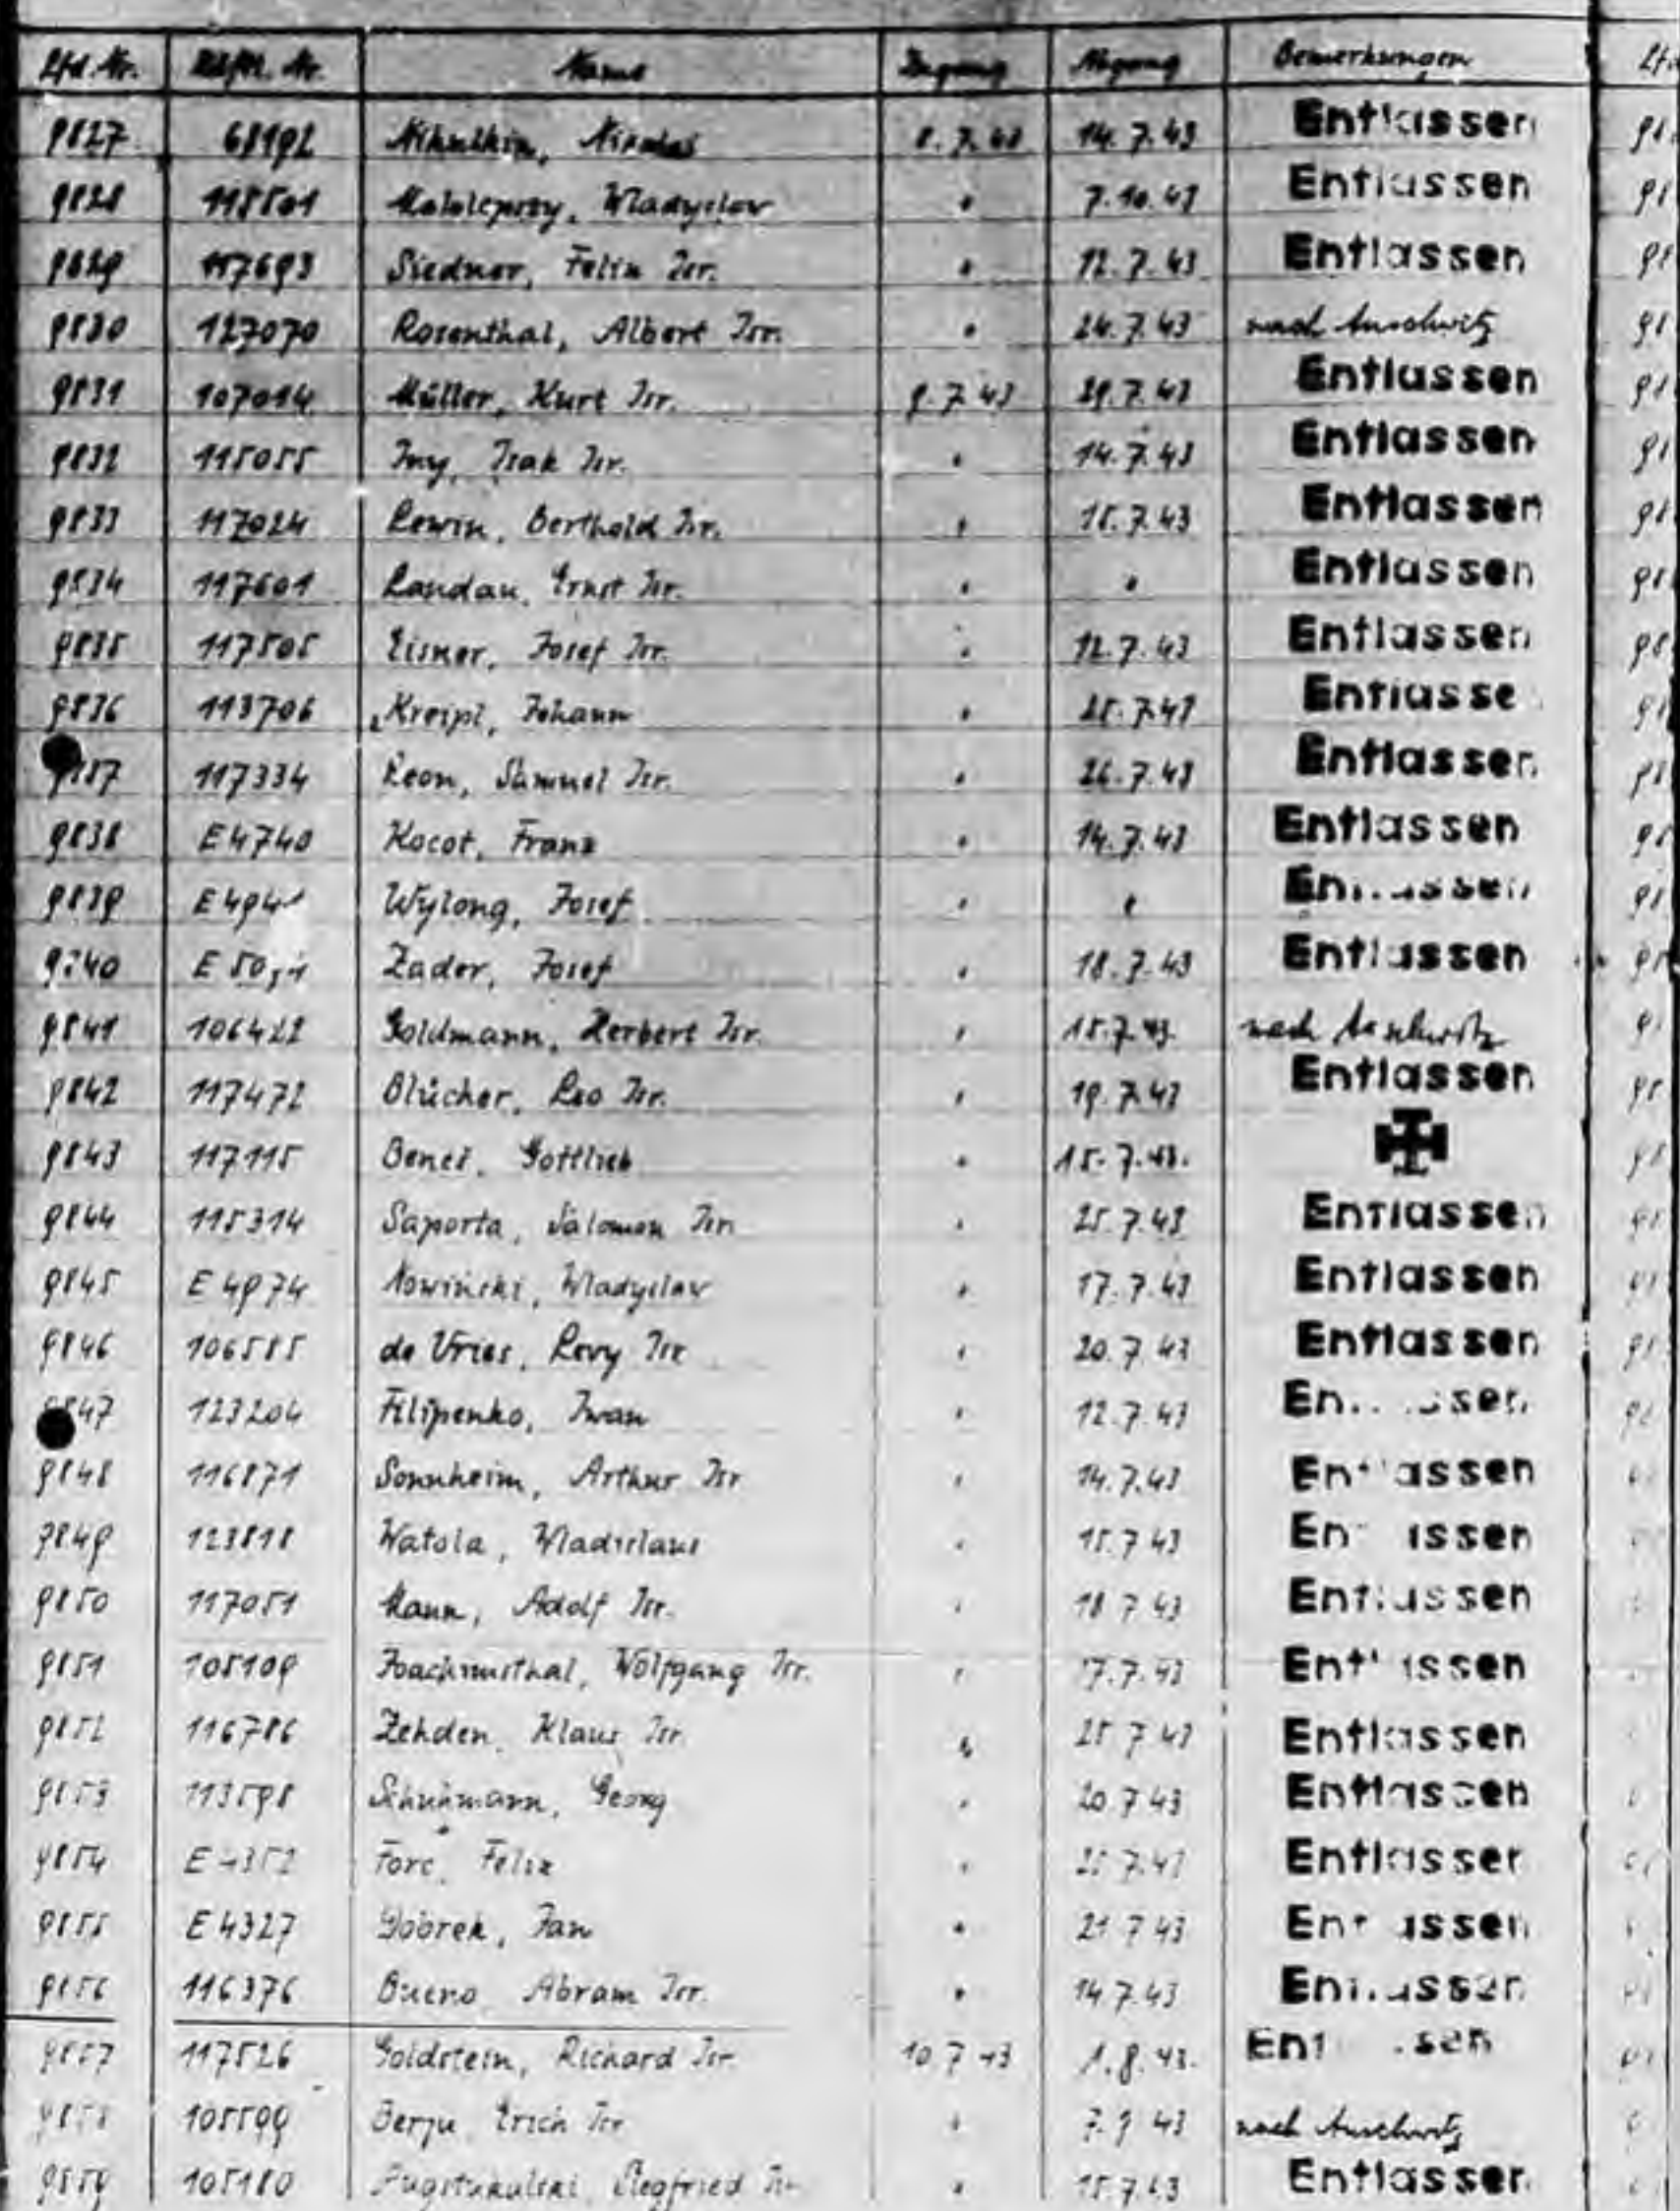 Lfd. Nr. Häftl. Nr. Name Zugang Abgang Bemerkungen
9827 68192 Nikulkin, Nikolas 8.7.43 14.7.43 Entlassen
9828 118501 Wladyslaw " 7.10.43 Entlassen
9829 117693 Siedner, Felix Isr. " 12.7.43 Entlassen
9830 127070 Rosenthal, Albert Isr. " 24.7.43 nach Auschwitz
9831 107014 Müller, Kurt Isr. 9.7.43 29.7.43 Entlassen
9832 115055 Isak Isr. " 14.7.43 Entlassen
9833 117024 Lewin, Berthold Isr. " 15.7.43 Entlassen
9834 117601 Landau, Ernst Isr. " " Entlassen
9835 117505 Eisner, Josef Isr. " 12.7.43 Entlassen
9836 113706 Kreipl, Johann " 25.7.43 Entlasse
9837 117334 Leon, Samuel Isr. " 26.7.43 Entlassen
9838 E 4740 Kocot, Franz " 14.7.43 Entlassen
9839 E 4941 Wylong, Josef " " Entlassen
9840 Zader, Josef " 18.7.43 Entlassen
9841 106422 Goldmann, Herbert Isr. " 15.7.43. nach Auschwitz
9842 117472 Blücher, Leo Isr. " 19.7.43 Entlassen
9843 117115 Beneš, Gottlieb " 15.7.43.
9844 115314 Saporta, Salomon Isr. " 25.7.43 Entlassen
9845 E 4974 Nowinski, Wladyslaw " 17.7.43 Entlassen
9846 106585 de Vries, Levy Isr. " 20.7.43 Entlassen
9847 123204 Filipenko, Iwan " 12.7.43 Entlassen
9848 116871 Sonnheim, Arthur Isr. " 14.7.43 Entlassen
9849 123818 Watola, Wladislaus " 15.7.43 Entlassen
9850 117051 Mann, Adolf Isr. " 18.7.43 Entlassen
9851 105109 Joachimsthal, Wolfgang Isr. " 17.7.43 Entlassen
9852 116786 Zehden, Klaus Isr. " 25.7.43 Entlassen
9853 113598 Schuhmann, Georg " 20.7.43 Entlassen
9854 E 4352 Forc, Felix " 25.7.43 Entlassen
9855 E 4327 Gobrek, Jan " 21.7.43 Entlassen
9856 116376 Bueno Abram Isr. " 14.7.43 Entlassen
9857 117526 Goldstein, Richard Isr. 10.7.43 1.8.43. Entlassen
9858 105599 Berju, Erich Isr. " 7.9.43 nach Auschwitz
9859 105180 Siegfried Isr. " 15.7.43 Entlassen